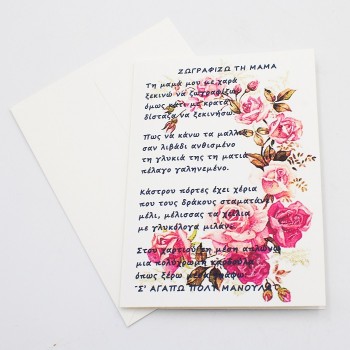 ΖΩΓΡΑΦΙΖΩ ΤΗ ΜΑΜΑ
Τη μαμά μου με χαρά
ξεκινώ να ζωγραφίζω
όμως κάτι με κρατά
δίσταζα να ξεκινήσω.
Πως να κάνω τα μαλλιά
σαν λιβάδι ανθισμένο
τη γλυκιά της τη ματιά
πέλαγο γαληνεμένο.
Κάστρου πόρτες έχει χέρια
που τους δράκους σταματάνε
μέλι, μέλισσας τα χείλια
με γλυκόλογα μιλάνε
Στου χαρτιού τη μέση απλώνω
μια πολύχρωμη καρδούλα
όπως ξέρω μέσα γράφω:
"Σ' ΑΓΑΠΩ ΠΟΛΥ ΜΑΝΟΥΛΑ"